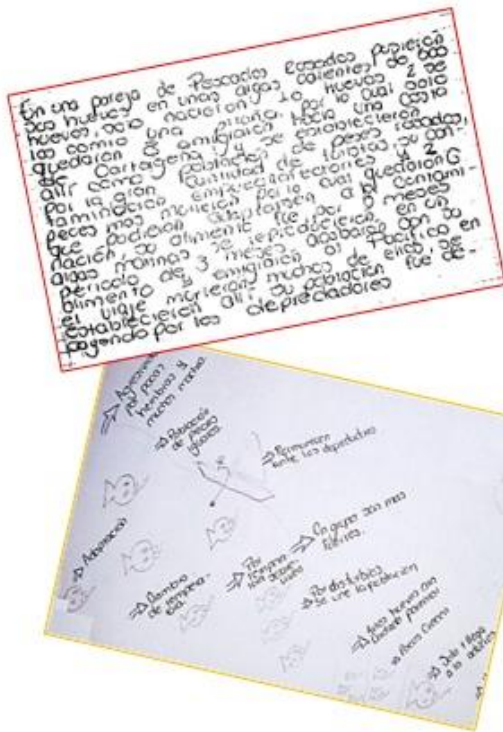 En una pareja de Pescados rosados pusieron
sus huevos en unas algas calientes de 600
huevos, solo nacieron 10 huevos 2 se
los comio una piraña, por lo cual solo
quedaron 8 emigraron hacia una costa
de Cartagena y se establecieron
alli como población de peces rosados,
por la gran cantidad de turistas, su con-
taminación y 2
peces mas murieron por lo cual quedaron 6
que pudieron adaptarsen a la contami-
nación, su alimento fue por 2 meses
algas marinas se reprodujeron en un
periodo de 3 meses, acabaron con su
alimento y emigraron al Pacifico en
el viaje murieron muchos de ellos, se
establecieron alli, su población fue de-
pagando por los depreciadores
por pocas
hembras y
muchos machos
⇒ Población
de peces
iguales
⇒ Permanecen
ante los depredadores
⇒ Adaptación
⇒ Cambio
de tempera-
tura
⇒ Por
⇒ En grupo son mas
fuertes.
se une la población
huevos sin
cuidado
⇒ Pocos
⇒ Solo 1 llega
a la adultez